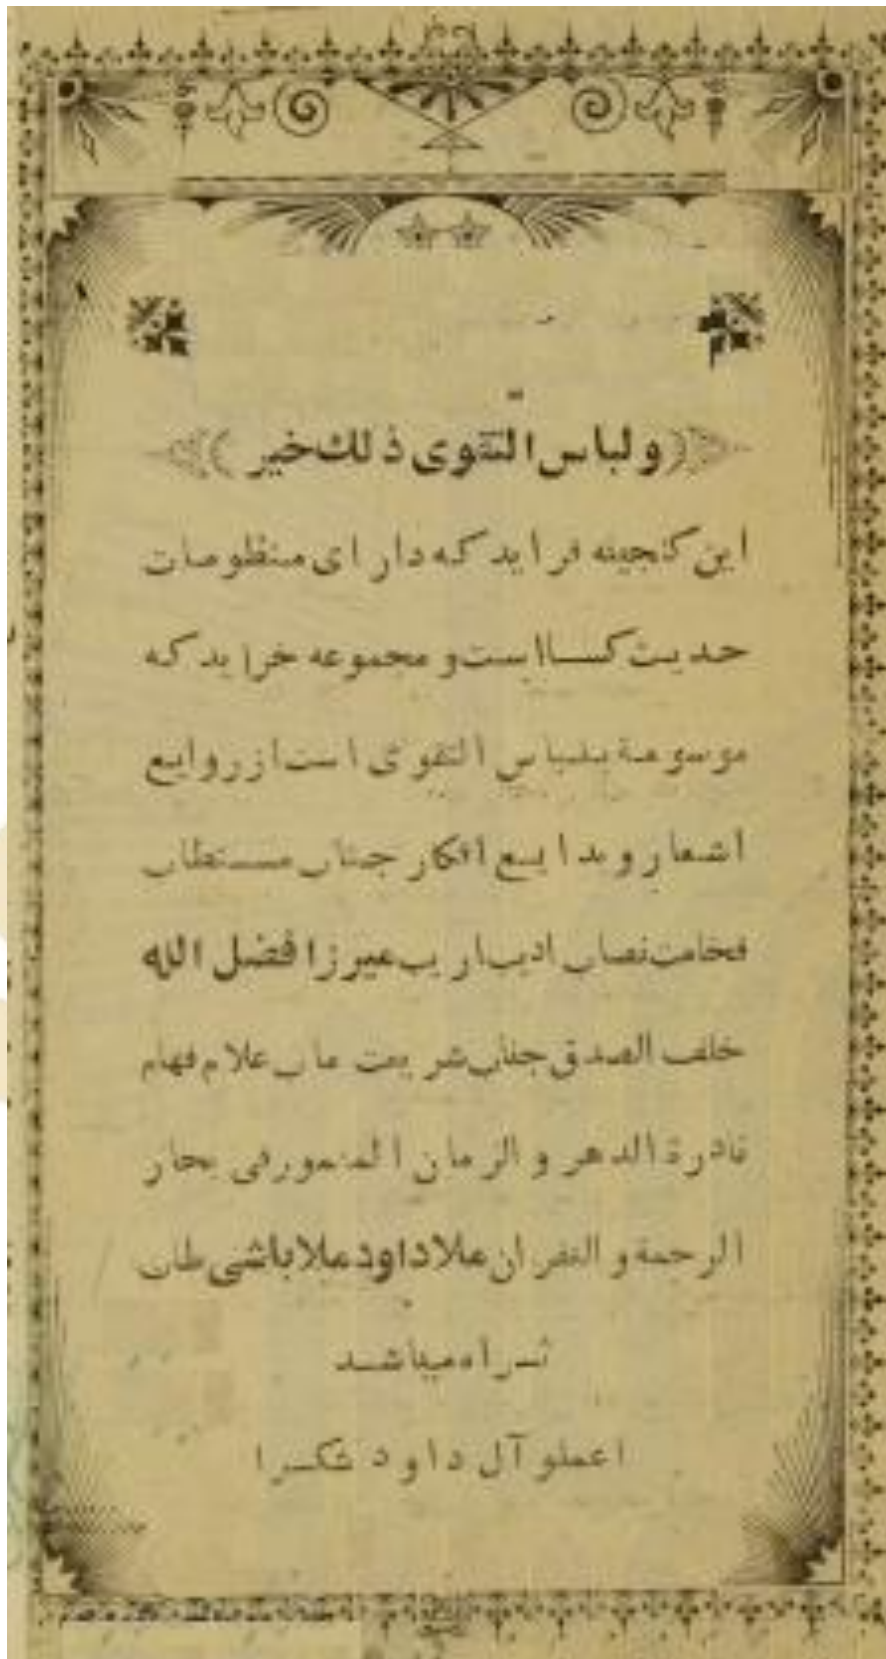 ولباس التقوی ذلك خير
این گنجینه فراید که دارای منظومات
حدیث کسا است و مجموعه خراید که
موسومة بلباس التقوی است از روایع
اشعار و بدایع افکار جناب مستطاب
فخامت نصاب ادیب اریب میرزا فضل الله
خلف الصدق جناب شریعت مآب علام فهام
نادرة الدهر و الزمان المغمور فی بحار
الرحمة و الغفران ملا داود ملا باشی طاب
ثراه میباشد
اعملو آل داود شکرا